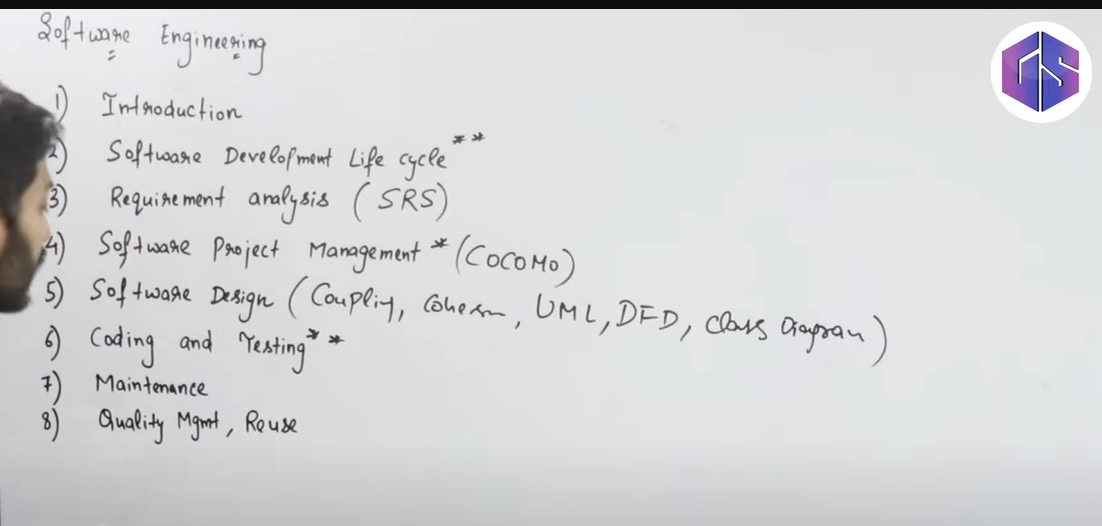 Software Engineering
1) Introduction
2) Software Development Life cycle **
3) Requirement analysis (SRS)
4) Software Project Management * (COCOMO)
5) Software Design (Coupling, Cohesion, UML, DFD, Class Diagram)
6) Coding and Testing **
7) Maintenance
8) Quality Mgmt, Reuse
GS